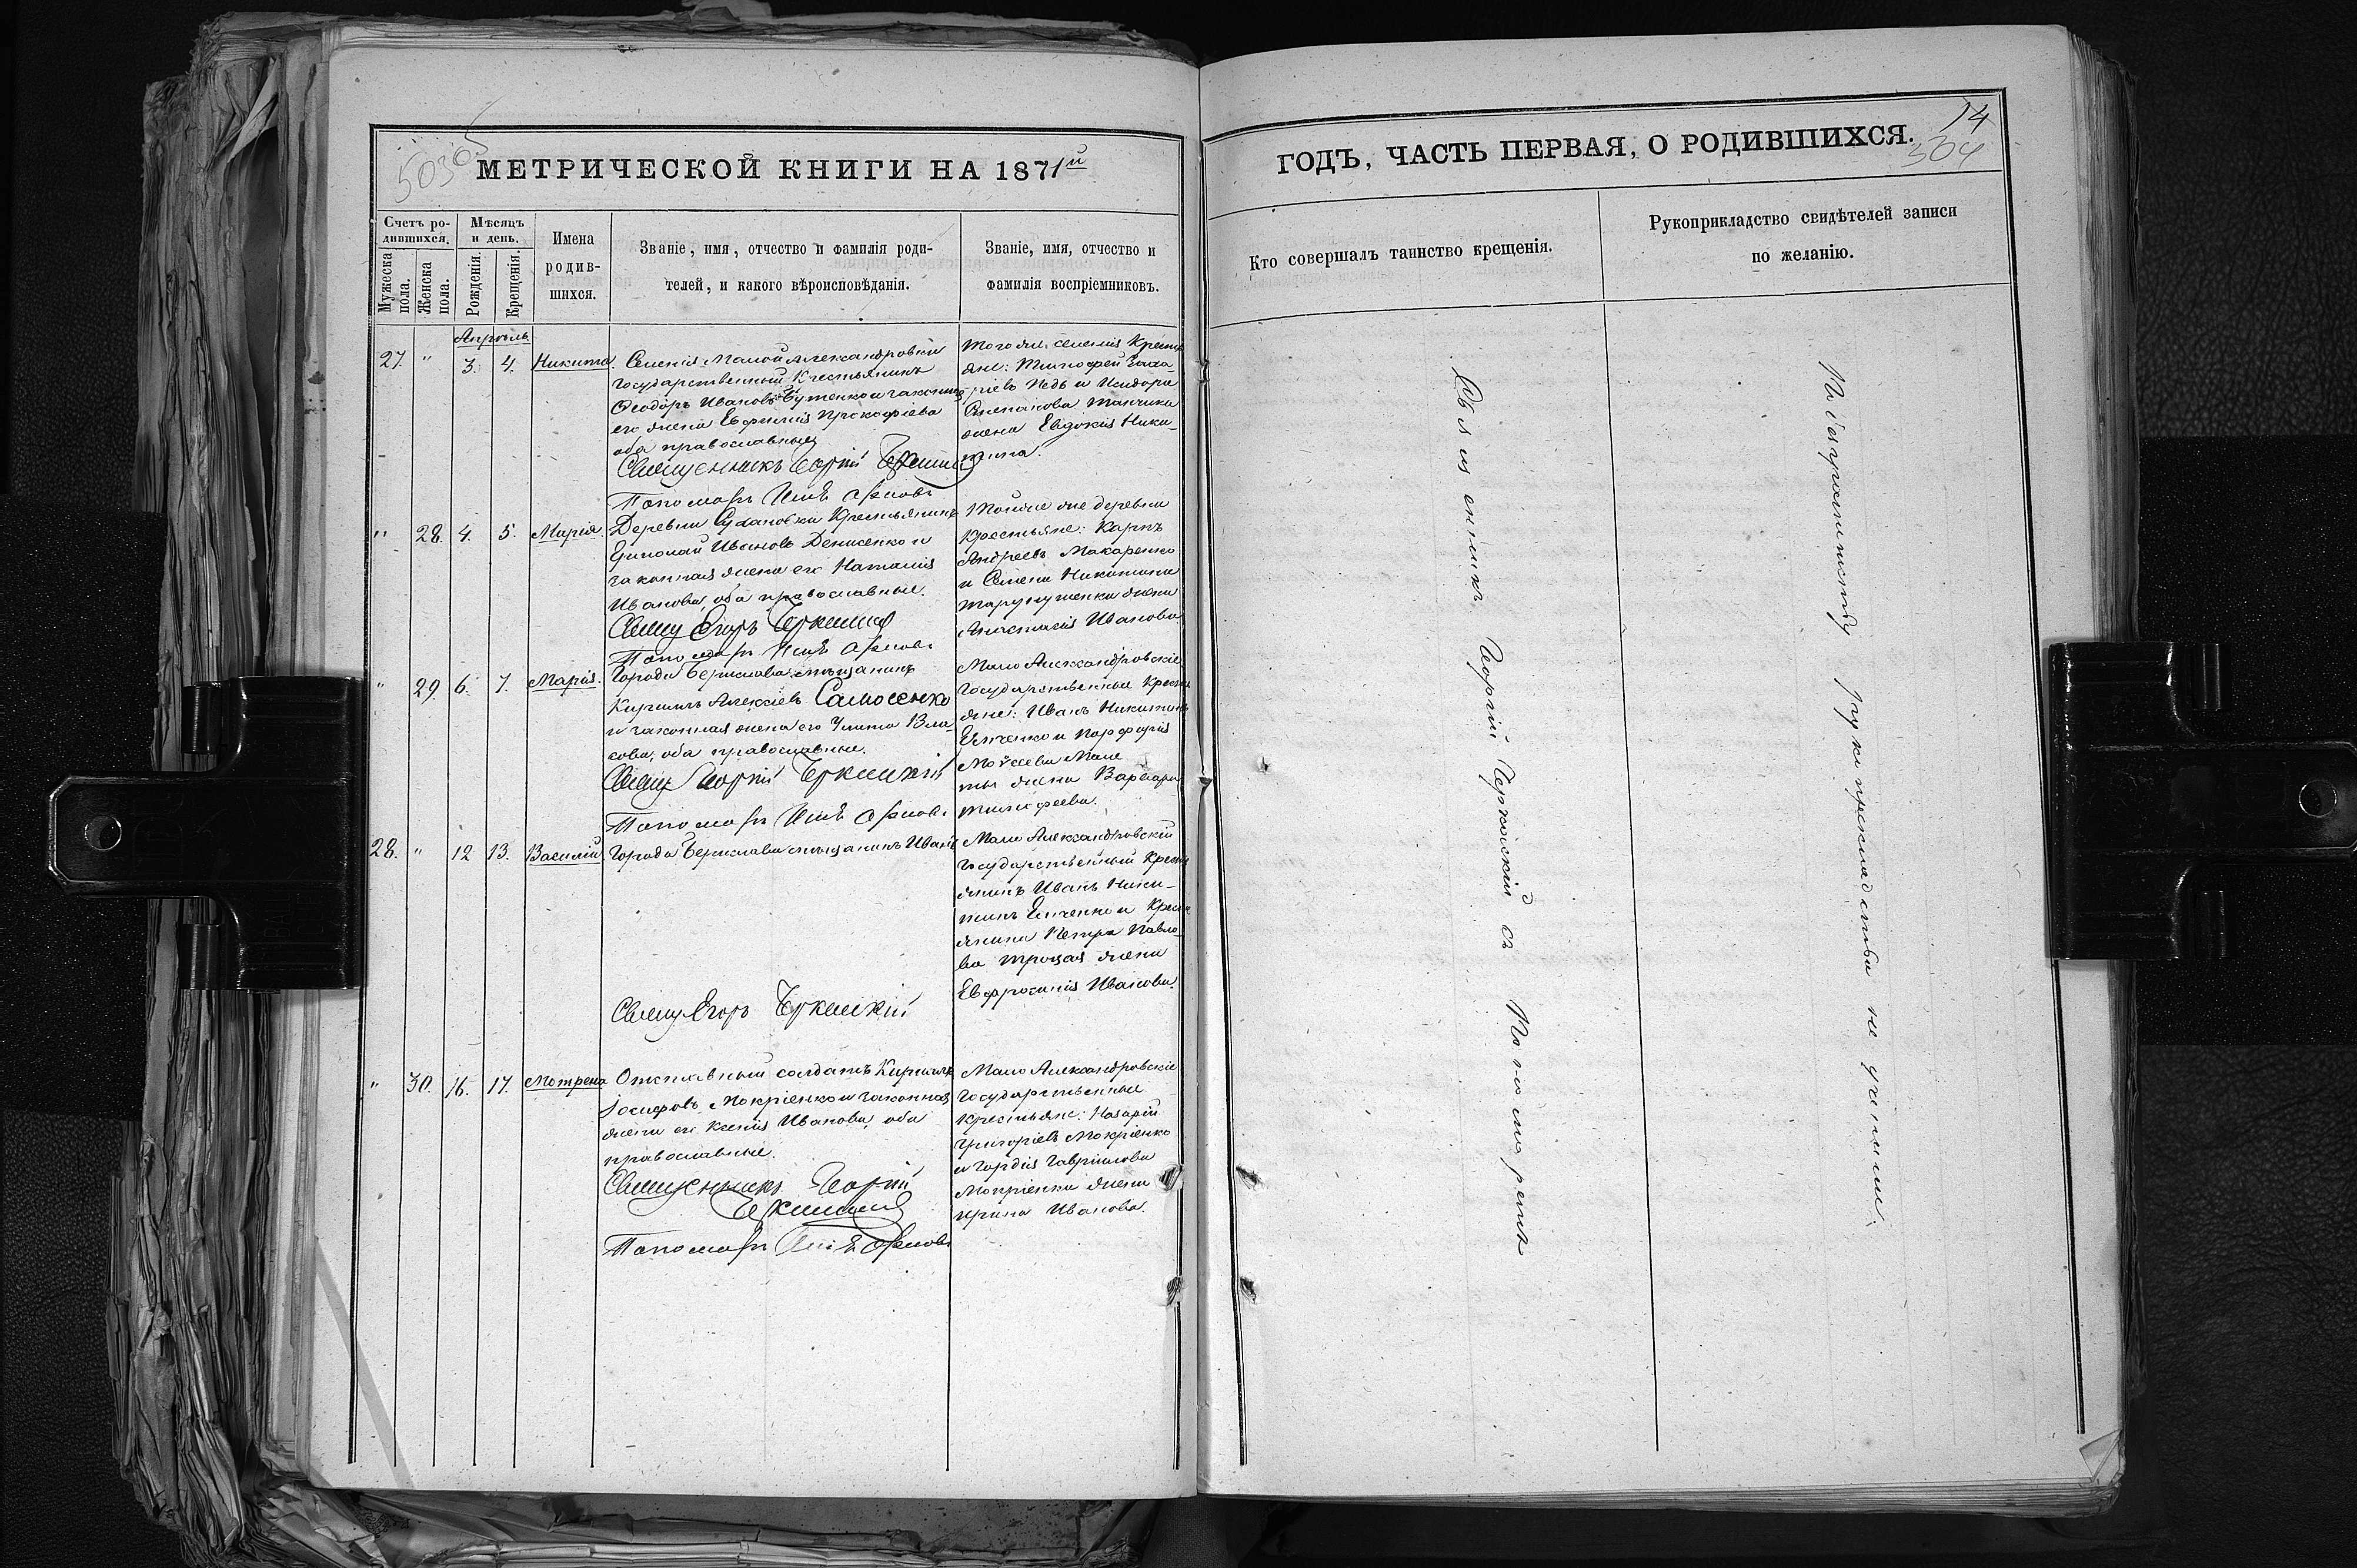 50305
МЕТРИЧЕСКОЙ КНИГИ НА 1871й
Счетъ ро-
дившихся.
Мужеска пола.
Женска пола.
Мѣсяцъ
и день.
Рожденія.
Крещенія.
Имена
родив-
шихся.
Званіе, имя, отчество и фамилія роди-
телей, и какого вѣроисповѣданія.
Званіе, имя, отчество и
фамилія воспріемниковъ.
Апрѣль
27. " 3. 4. Никита.
Селенія Малой Александровки
государственный крестьянинъ
Ѳеодоръ Ивановъ Бутенко и законная
его жена Евфимія Прокофіева
оба православные
Священникъ Георгій
Пономарь
Того же селенія крестья
не: Тимофей Заха-
ріевъ Недь и Исидора
Степанова
жена Евдокія Ники-
тина.
" 28. 4. 5. Марія.
Деревни крестьянинъ
Ермолай Ивановъ Денисенко и
законная жена его Наталія
Иванова, оба православные.
Свящ Егоръ
Пономарь
Той же деревни
крестьяне: Карпъ
Андреевъ Макаренко
и Семена Никитина
жена
Анастасія Иванова.
" 29. 6. 7. Марія.
Города Берислава мѣщанинъ
Кириллъ Алексѣевъ Самосенко
и законная жена его Улита Вла-
сова, оба православные.
Свящ Георгій
Пономарь
Мало Александровскіе
государственные крестья
не: Иванъ Никитинъ
Емченко и Порфирія
Моѵсеева
жена Варвара
Тимофеева.
28. " 12 13. Василій.
Города Берислава мѣщанинъ Иванъ
Свящ Егоръ
Мало Александровскій
государственный кресть
янинъ Иванъ Ники-
тинъ Емченко и кресть
янина Петра Павло-
ва жена
Евфросинія Иванова.
" 30. 16. 17. Мотрена
Отставный солдатъ Кириллъ
Іосифовъ Мокріенко и законная
жена его Ксенія Иванова, оба
православные.
Священникъ Георгій
Пономарь
Мало Александровскіе
государственные
крестьяне: Назарій
Григоріевъ Мокріенко
и Гордія Гавріилова
Мокріенка жена
Ирина Иванова.
14
304
ГОДЪ, ЧАСТЬ ПЕРВАЯ, О РОДИВШИХСЯ.
Кто совершалъ таинство крещенія.
Рукоприкладство свидѣтелей записи
по желанію.
Священникъ Георгій съ Пономаремъ
По безграмотству рукоприкладства не учинили.